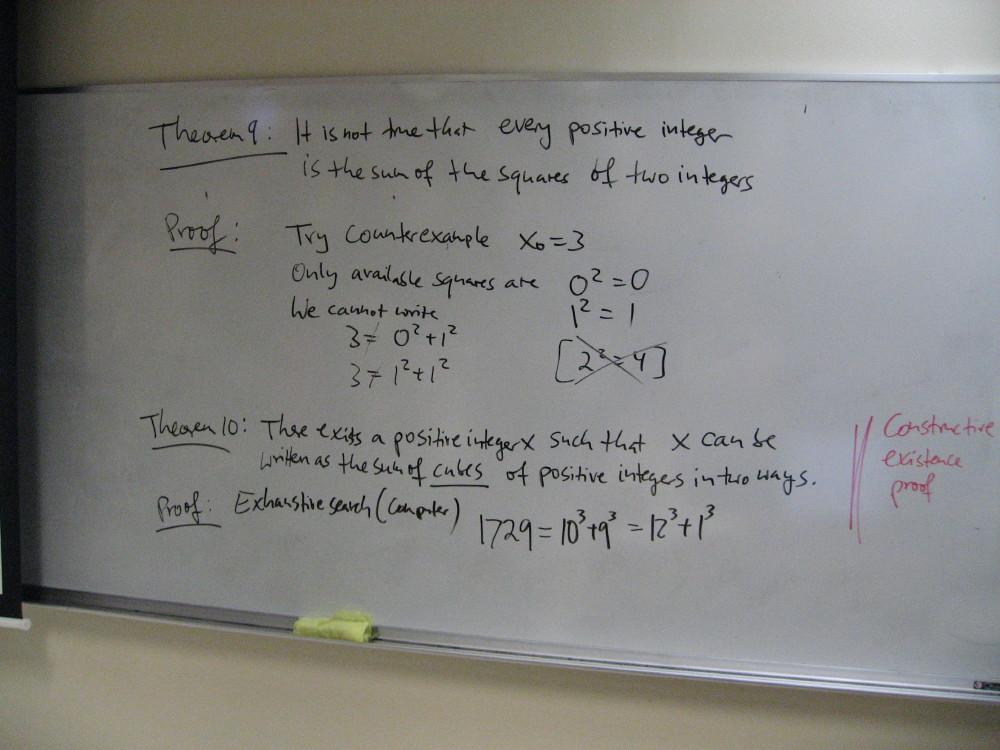 Theorem 9: It is not true that every positive integer
is the sum of the squares of two integers
Proof: Try Counterexample x₀=3
Only available squares are 0²=0
We cannot write 1²=1
3≠ 0²+1² [2²=4]
3≠ 1²+1²
Theorem 10: There exists a positive integer x such that x can be
written as the sum of cubes of positive integers in two ways.
Proof: Exhaustive search (Computer) 1729=10³+9³=12³+1³
Constructive
existence
proof